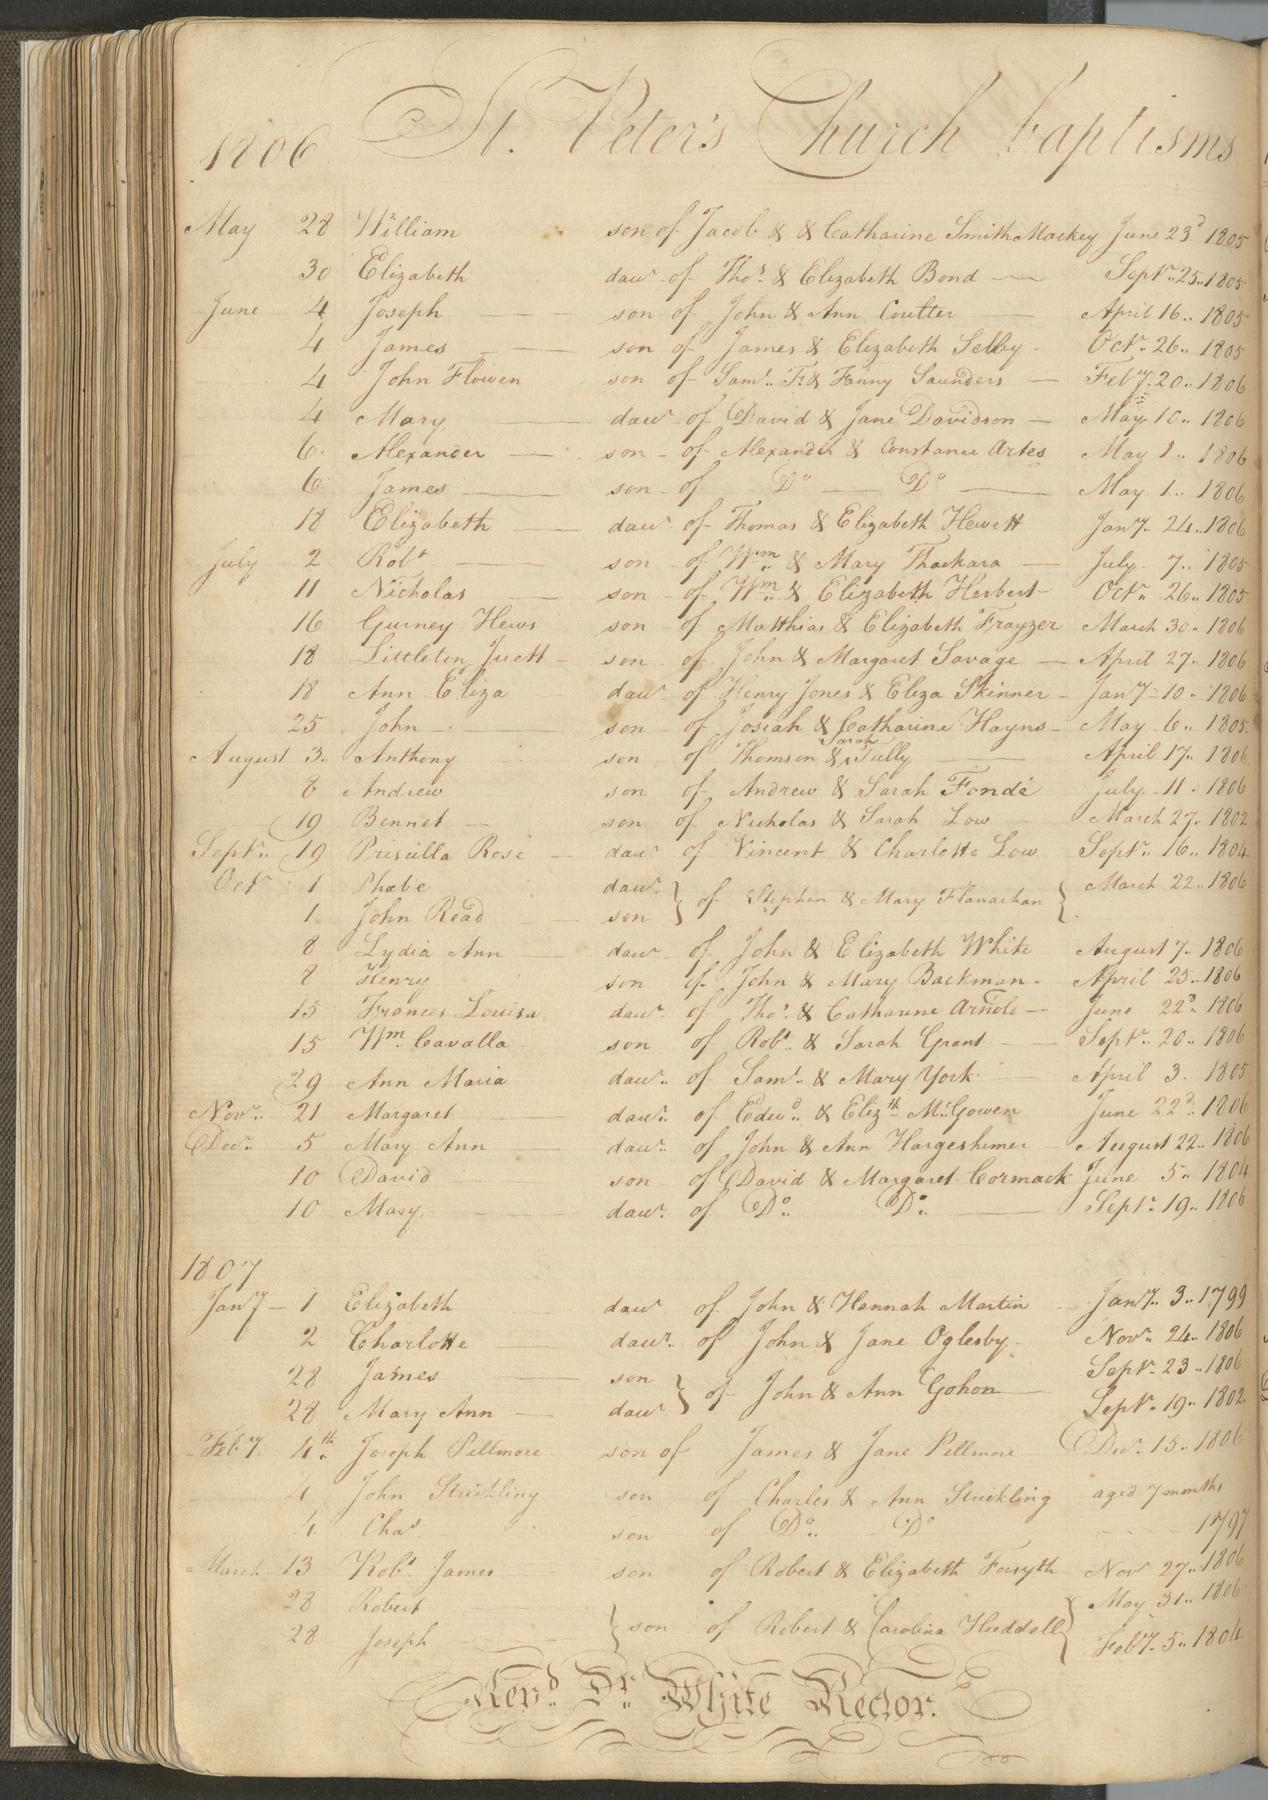 1806 St. Peter's Church baptisms
May 28 William son of Jacob & & Catharine Smith Mackey June 23d 1805
30 Elizabeth dawr of Thos. & Elizabeth Bond Septr. 25.. 1805
June 4 Joseph son of John & Ann Coulter April 16.. 1805
4 James son of James & Elizabeth Selby Octr. 26.. 1805
4 John Flowen son of Saml. F. & Fanny Saunders Feby. 20.. 1806
4 Mary dawr of David & Jane Davidson May 10.. 1806
6 Alexander son of Alexander & Constance Artes May 1.. 1806
6 James son of Do Do May 1.. 1806
18 Elizabeth dawr of Thomas & Elizabeth Hewett Jany. 24.. 1806
July 2 Robt son of Wm. & Mary Thackara July 7.. 1805
11 Nicholas son of Wm. & Elizabeth Herbert Octr. 26.. 1805
16 Gurney Hews son of Matthias & Elizabeth Frayzer March 30.. 1806
18 Littleton Juett son of John & Margaret Savage April 27.. 1806
18 Ann Eliza dawr of Henry Jones & Eliza Skinner Jany 10.. 1806
25 John son of Josiah & Catharine Hayns May 6.. 1805
August 3.. Anthony son of Thomson & Sarah Tully April 17.. 1806
8 Andrew son of Andrew & Sarah Fondé July 11.. 1806
19 Bennet son of Nicholas & Sarah Low March 27.. 1802
Septr.. 19 Priscilla Rose dawr of Vincent & Charlotte Low Septr. 16.. 1804
Octr 1 Phœbe dawr. } of Stephen & Mary Flanachan { March 22.. 1806
1 John Read son
8 Lydia Ann dawr of John & Elizabeth White August 7.. 1806
8 Henry son of John & Mary Backman April 25.. 1806
15 Frances Louisa dawr. of Thos. & Catharine Arnold June 22d 1806
15 Wm. Cavalla son of Robt. & Sarah Grant Septr. 20.. 1806
29 Ann Maria dawr.. of Saml. & Mary York April 3. 1805
Novr.. 21 Margaret dawr.. of Edwd.. & Elizth McGowen June 22d.. 1806
Decr. 5 Mary Ann dawr.. of John & Ann Hargeshimer August 22.. 1806
10 David son of David & Margaret Cormack June 5.. 1804
10 Mary dawr. of Do.. Do.. Septr. 19.. 1806
1807
Jany 1 Elizabeth dawr of John & Hannah Martin Jany.. 3.. 1799
2 Charlotte dawr. of John & Jane Oglesby Novr. 24.. 1806
28 James son } of John & Ann Gohon Septr. 23.. 1806
28 Mary Ann dawr Septr. 19.. 1802
Feby. 4th. Joseph Pillmore son of James & Jane Pillmore Decr. 15.. 1806
4 John Strickling son of Charles & Ann Strickling aged 7 months
4 Chas son of Do.. Do 1797
March 13 Robt. James son of Robert & Elizabeth Forsyth Novr 27.. 1806
28 Robert } son of Robert & Carolina Huddell { May 31.. 1806
28 Joseph Feby. 5.. 1804
Revd. Dr. White Rector.